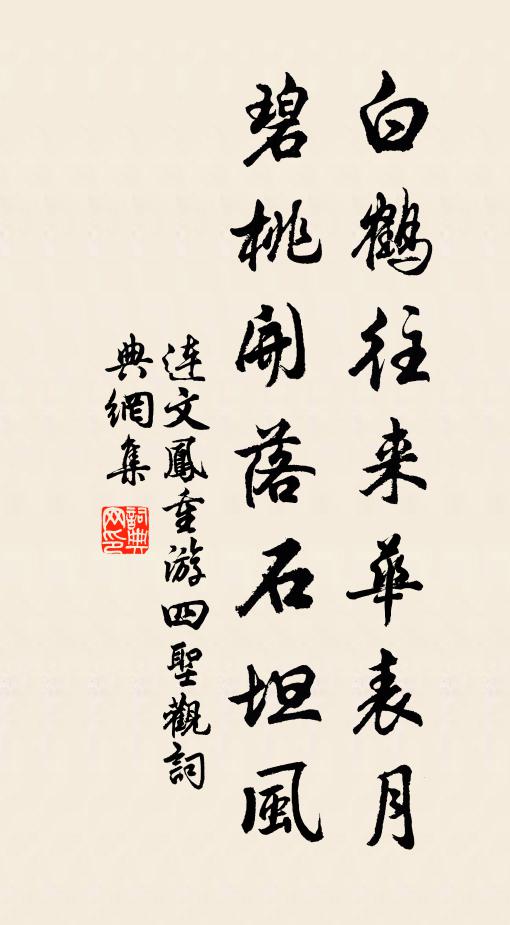 白鶴往来華表月
碧桃開落石坦風
連文鳳重游四聖觀詞
典網集
詞典网印